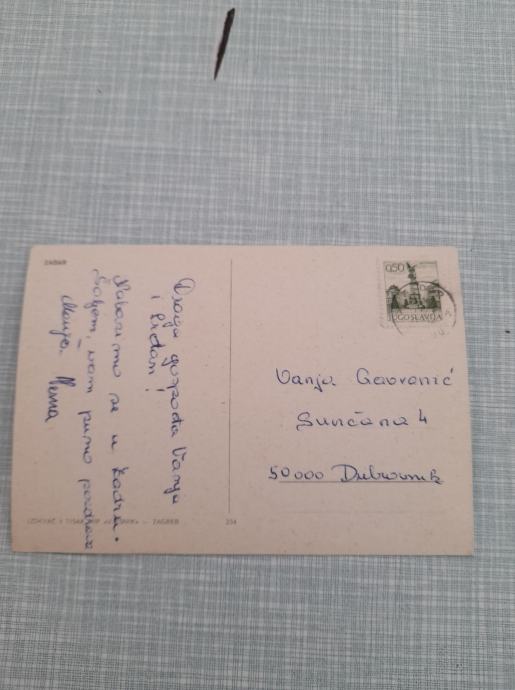 ZADAR
Draga gospođa Vanja
i Srđan!
Nalazimo se u Zadru.
Šaljem vam puno pozdrava
Marija. Nema
0,50
JUGOSLAVIJA
Vanja Gavranić
Sunčana 4
50000 Dubrovnik
IZDAVAČ I TISAK - ZAGREB
234